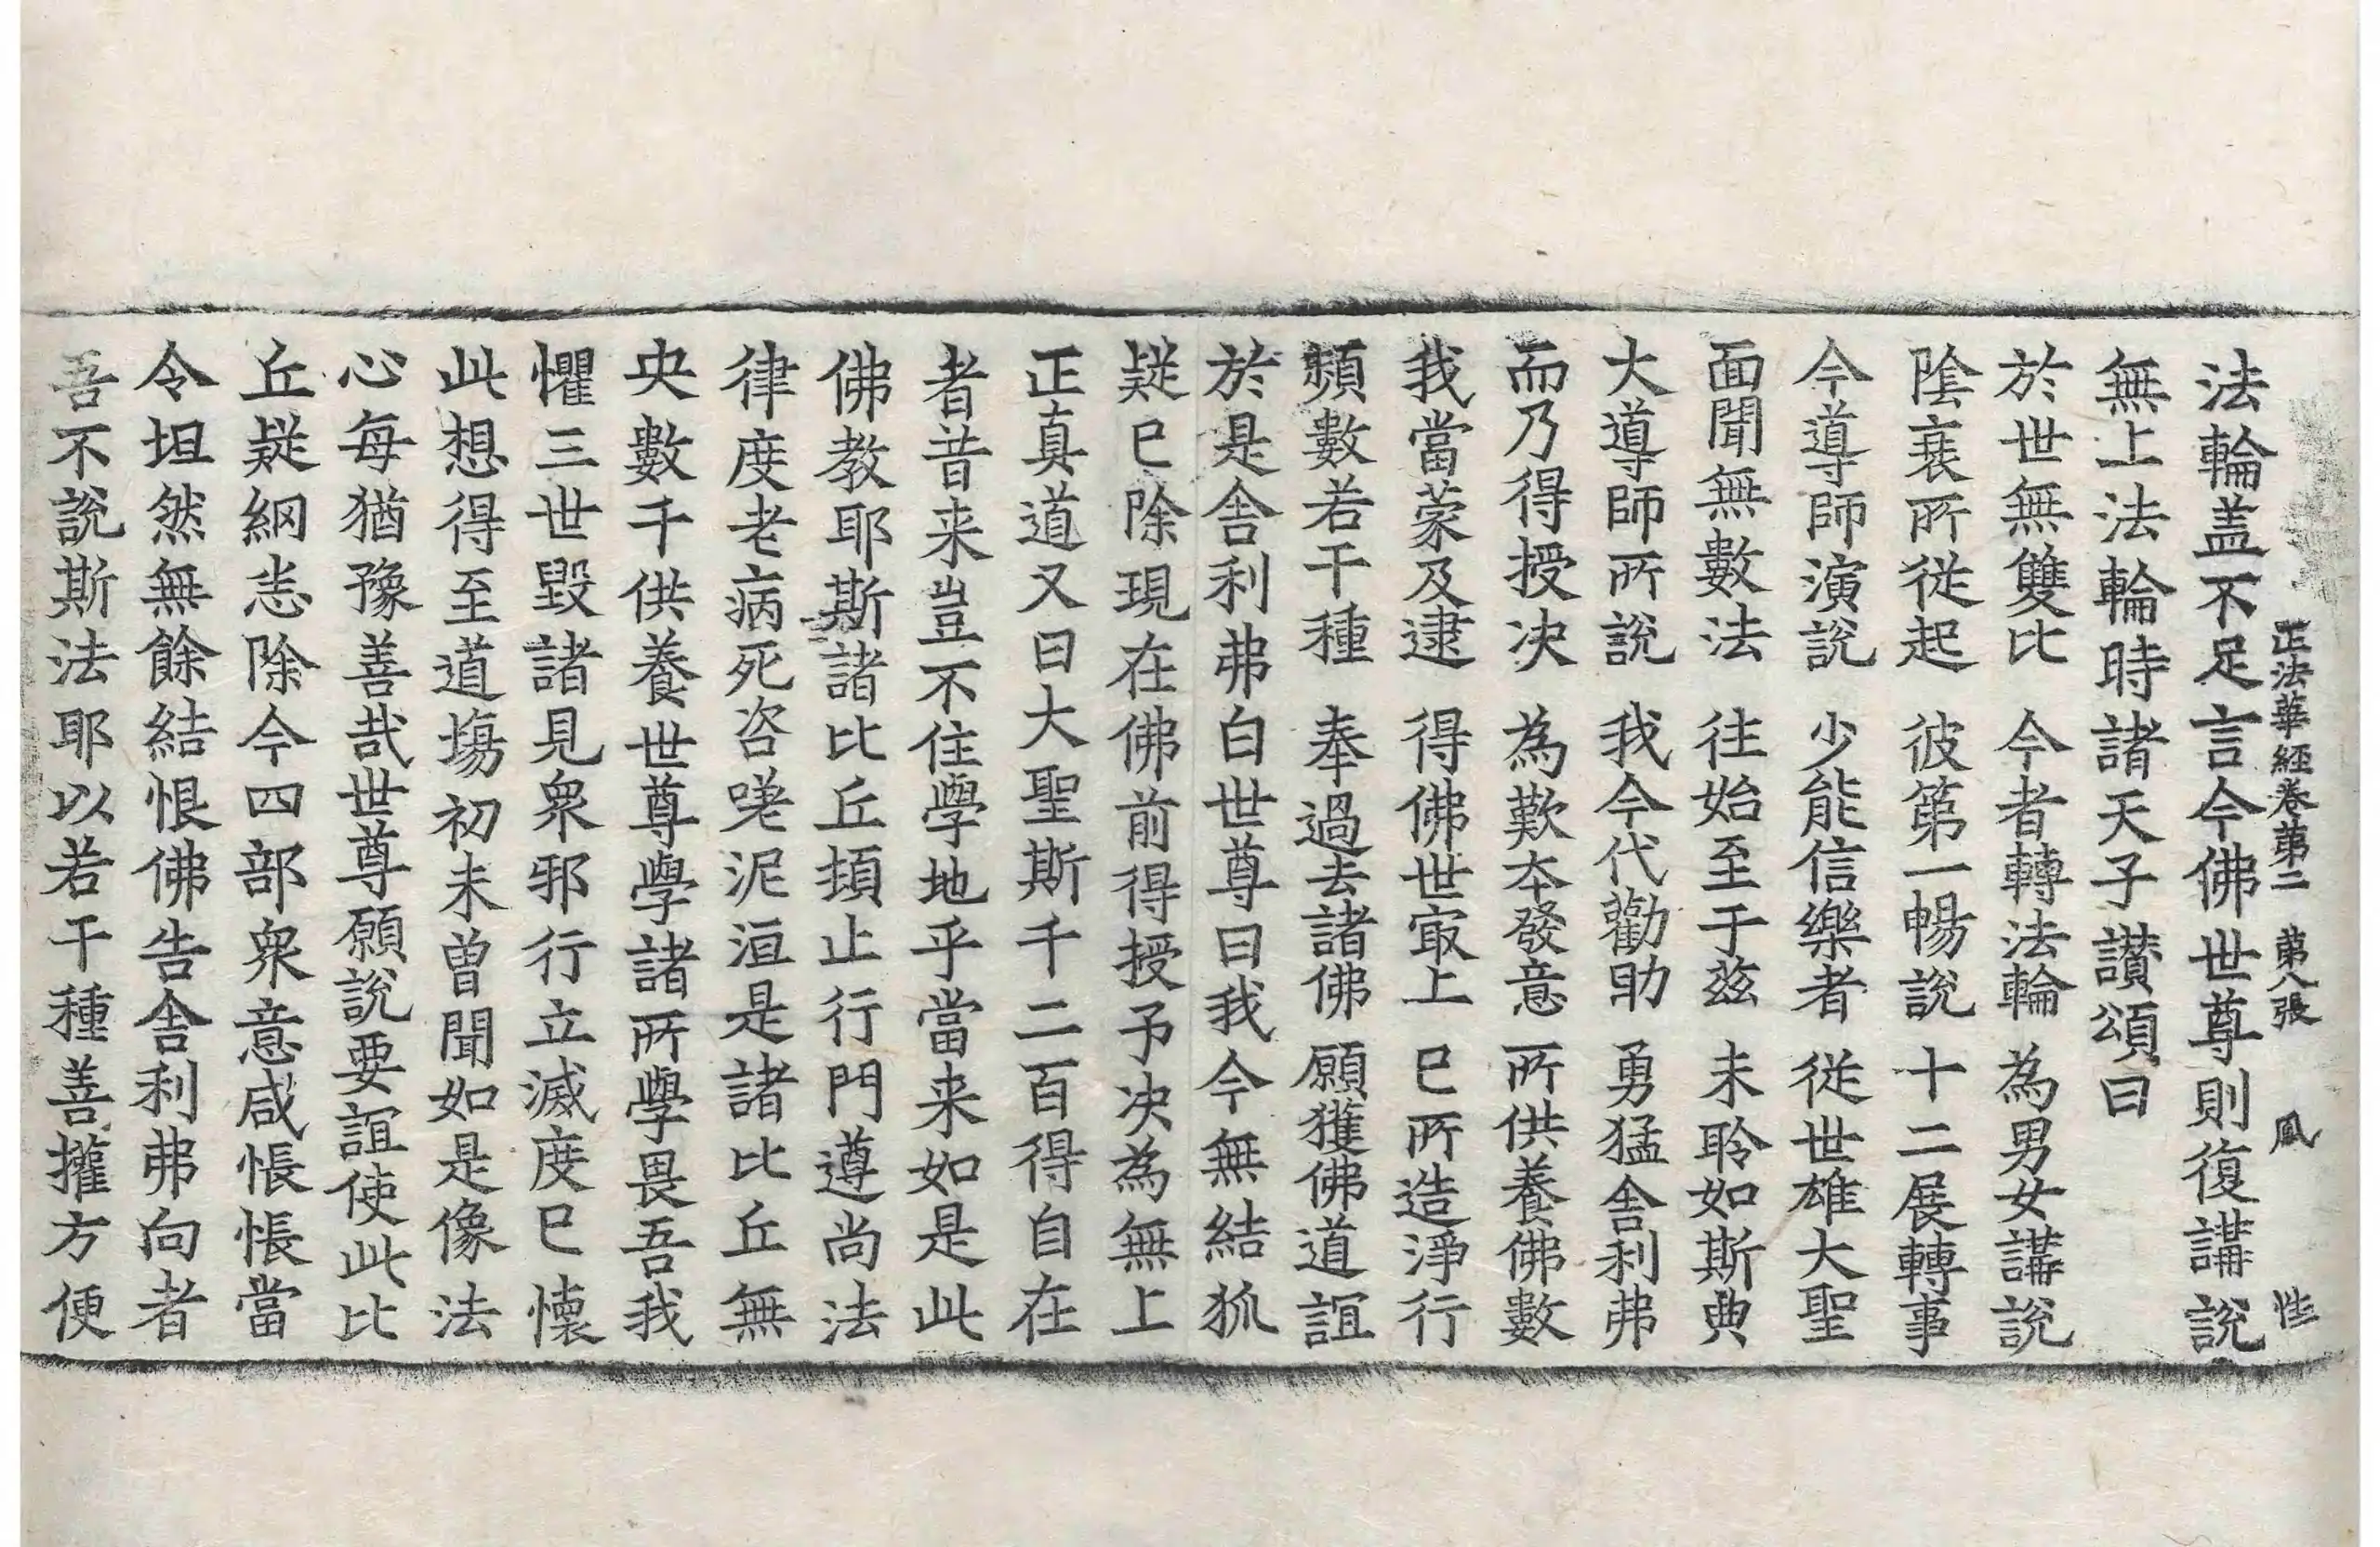 正法華經卷第二　第八張　鳳
法輪盖不足言今佛世尊則復講說
無上法輪時諸天子讃頌曰
於世無雙比　今者轉法輪　為男女講說
陰衰所從起　彼第一暢說　十二展轉事
今導師演說　少能信樂者　從世雄大聖
面聞無數法　往始至于茲　未聆如斯典
大導師所說　我今代勸助　勇猛舎利弗
而乃得授决　為歎夲發意　所供養佛數
我當蒙及逮　得佛世㝡上　巳所造淨行
頻數若干種　奉過去諸佛　願獲佛道誼
於是舎利弗白世尊曰我今無結狐
疑巳除現在佛前得授予决為無上
正真道又曰大聖斯千二百得自在
者昔来豈不住學地乎當来如是此
佛教耶斯諸比丘頊止行門遵尚法
律度老病死咨嗟泥洹是諸比丘無
央數千供養世尊學諸所學畏吾我
懼三世毀諸見衆邪行立滅度巳懷
此想得至道塲初未曾聞如是像法
心每猶豫善哉世尊願說要誼使此比
丘疑網恙除今四部衆意咸悵悵當
令坦然無餘結恨佛告舎利弗向者
吾不說斯法耶以若干種善攉方便